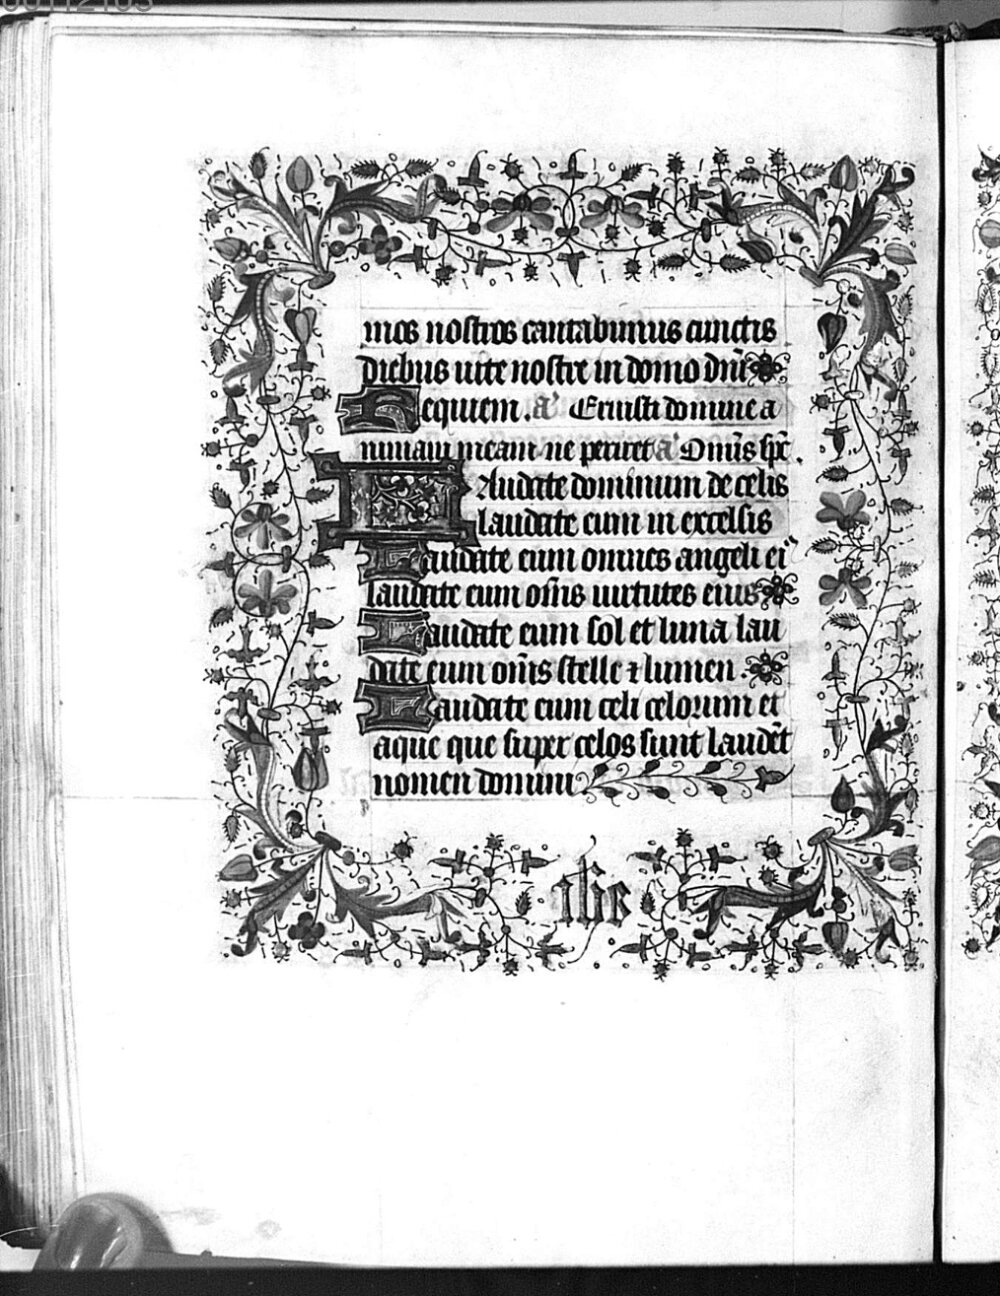 mos nostros cantabimus cunctis
diebus uite nostre in domo dn̄i
Requiem. a' Eruisti domine a
nimam meam ne periret a' Om̄is sp̄c.
Laudate dominum de celis
laudate eum in excelsis
Laudate eum omnes angeli ei"
laudate eum om̄s uirtutes eius
Laudate eum sol et luna lau
date eum om̄s stelle ⁊ lumen.
Laudate eum celi celorum et
aque que super celos sunt laudēt
nomen domini
ihc